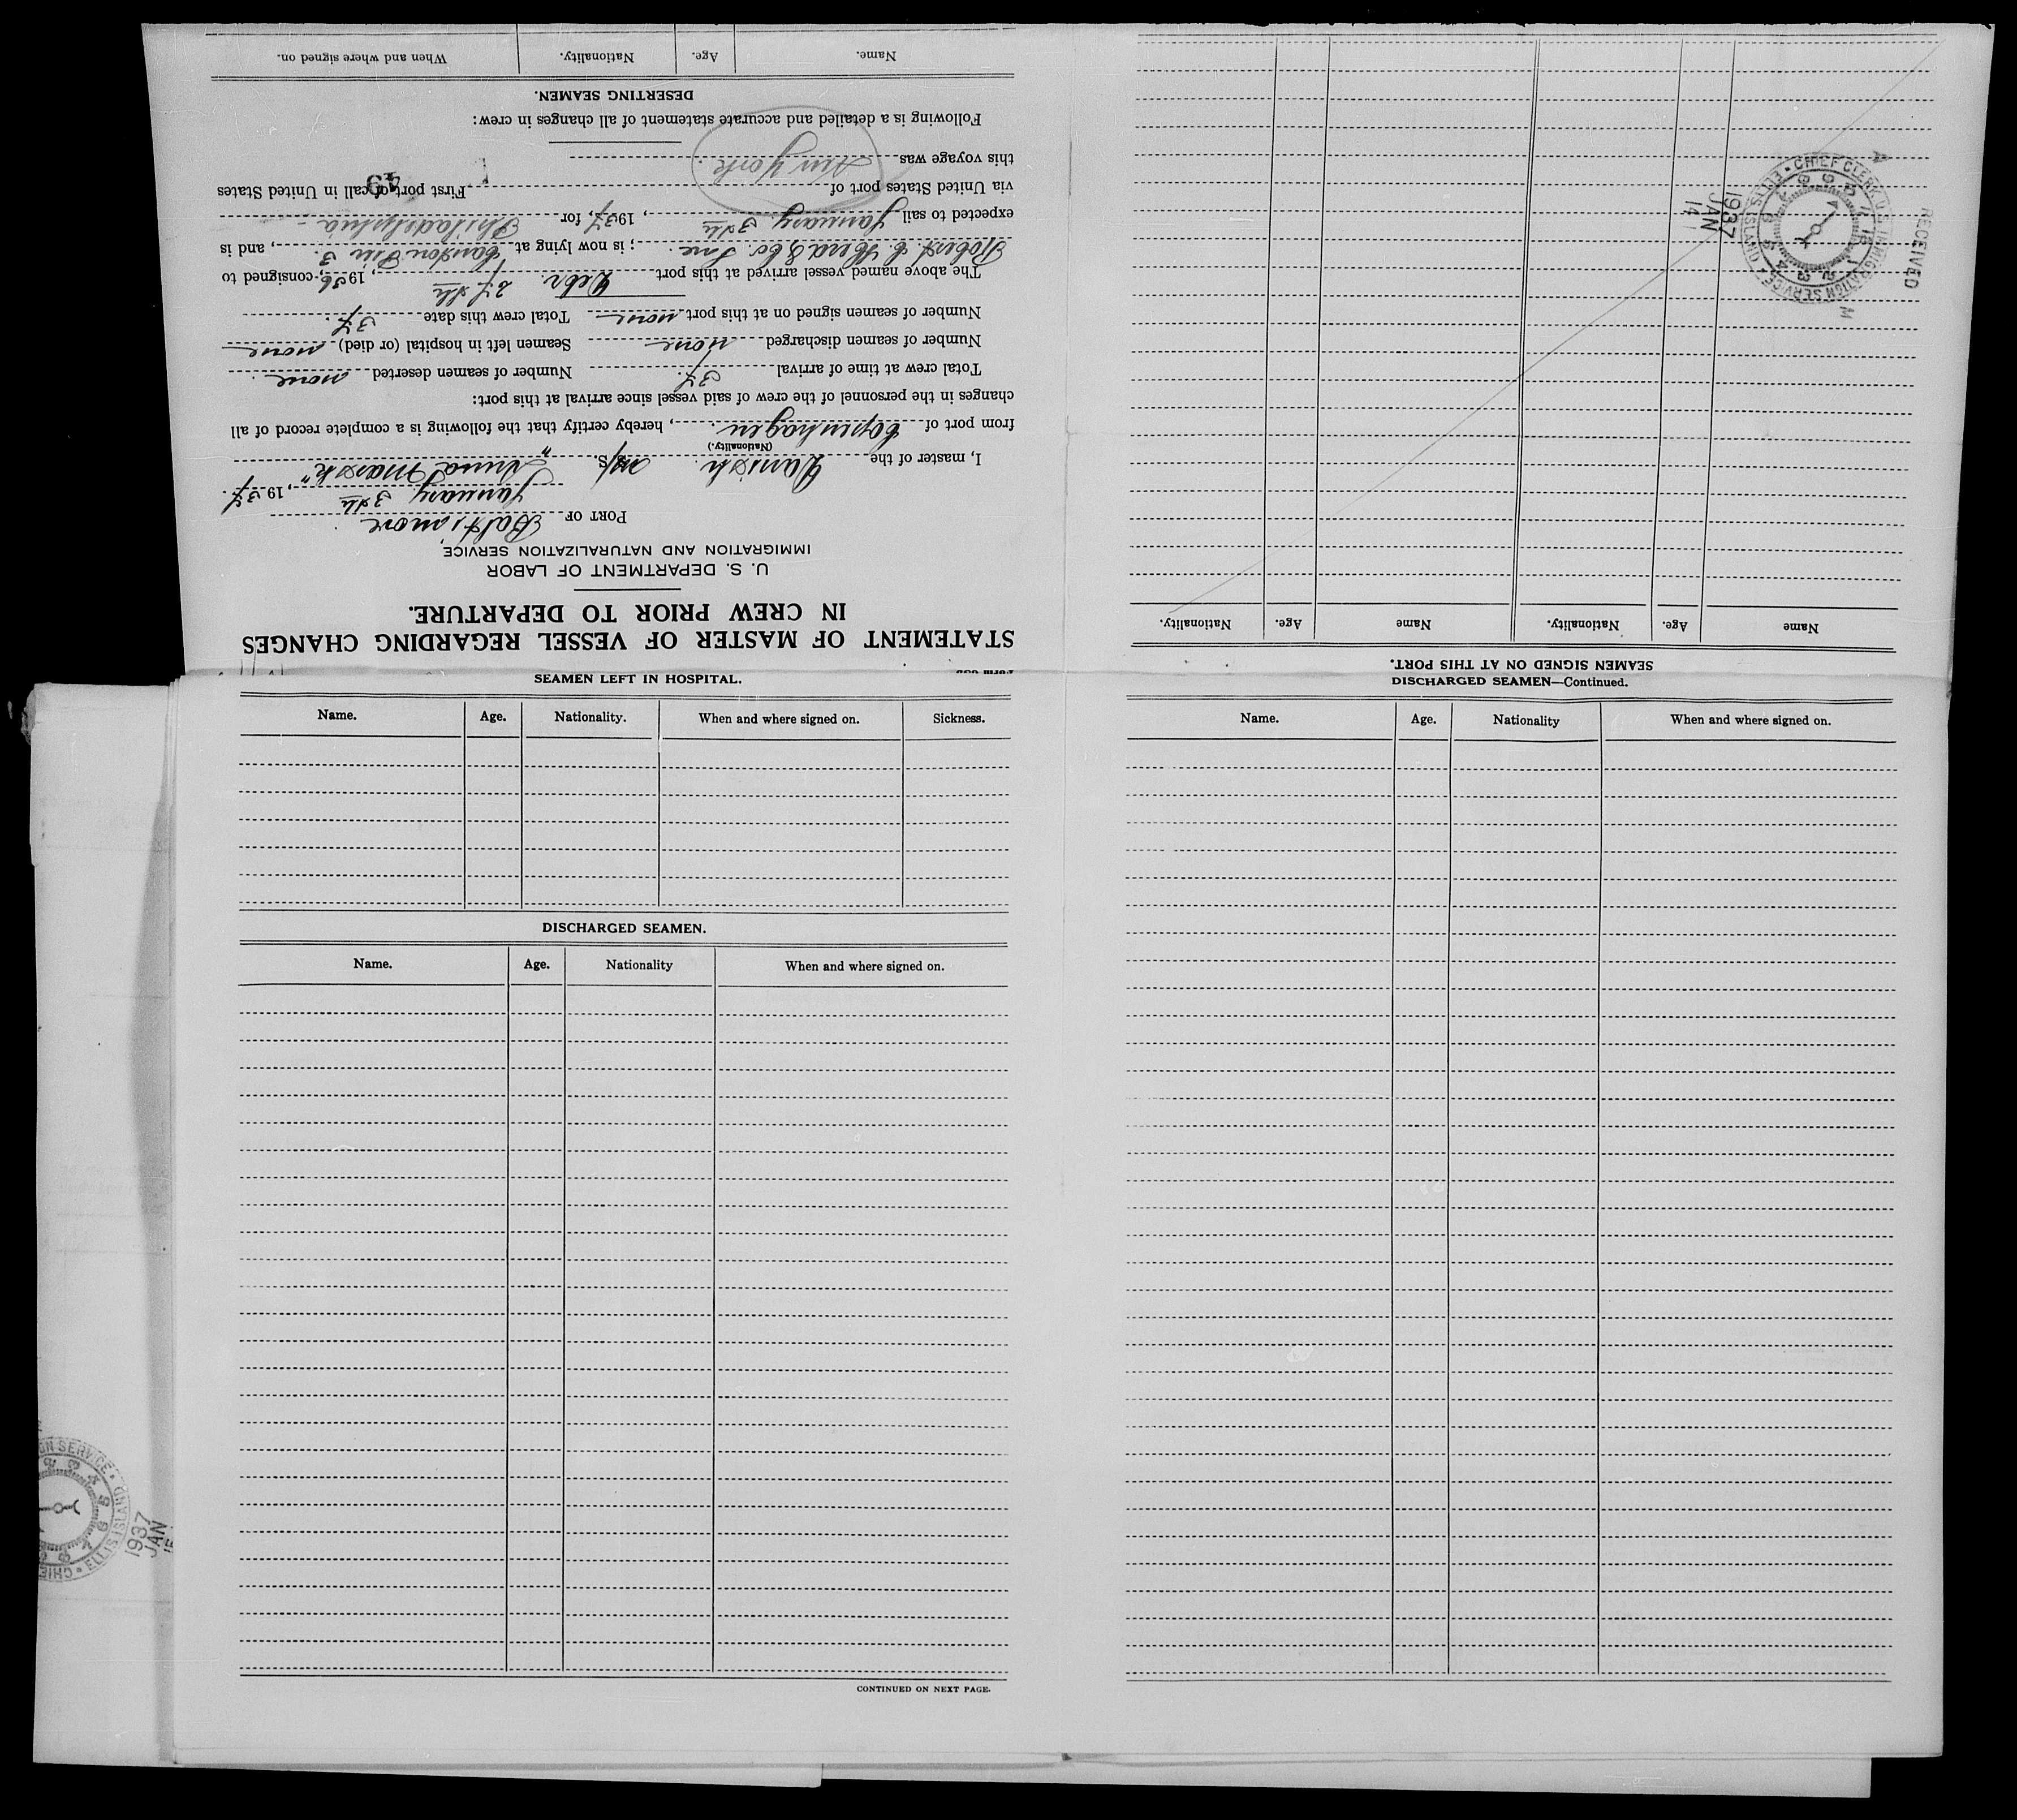 STATEMENT OF MASTER OF VESSEL REGARDING CHANGES
IN CREW PRIOR TO DEPARTURE.
U. S. DEPARTMENT OF LABOR
IMMIGRATION AND NATURALIZATION SERVICE
PORT OF Baltimore
January 3th, 1937.
I, master of the Danish M/S "Anna Mærsk"
(Nationality.)
from port of Copenhagen, hereby certify that the following is a complete record of all
changes in the personnel of the crew of said vessel since arrival at this port:
Total crew at time of arrival 37. Number of seamen deserted none.
Number of seamen discharged none Seamen left in hospital (or died) none
Number of seamen signed on at this port none Total crew this date 37.
The above named vessel arrived at this port Debr. 27th, 1936; consigned to
Robert C. Herd & Co. Inc.; is now lying at Canton Pier 3., and is
expected to sail January 3th, 1937, for Philadelphia
via United States port of First port of call in United States
49
this voyage was New York.
Following is a detailed and accurate statement of all changes in crew:
DESERTING SEAMEN.
Name. Age. Nationality. When and where signed on.
SEAMEN LEFT IN HOSPITAL.
Name. Age. Nationality. When and where signed on. Sickness.
DISCHARGED SEAMEN.
Name. Age. Nationality When and where signed on.
CONTINUED ON NEXT PAGE.
ELLIS ISLAND
1937
JAN
SEAMEN SIGNED ON AT THIS PORT.
Name Age. Nationality. Name Age. Nationality.
RECEIVED
CHIEF CLERK U.S. IMMIGRATION SERVICE • ELLIS ISLAND •
1937
JAN
14
DISCHARGED SEAMEN—Continued.
Name. Age. Nationality When and where signed on.